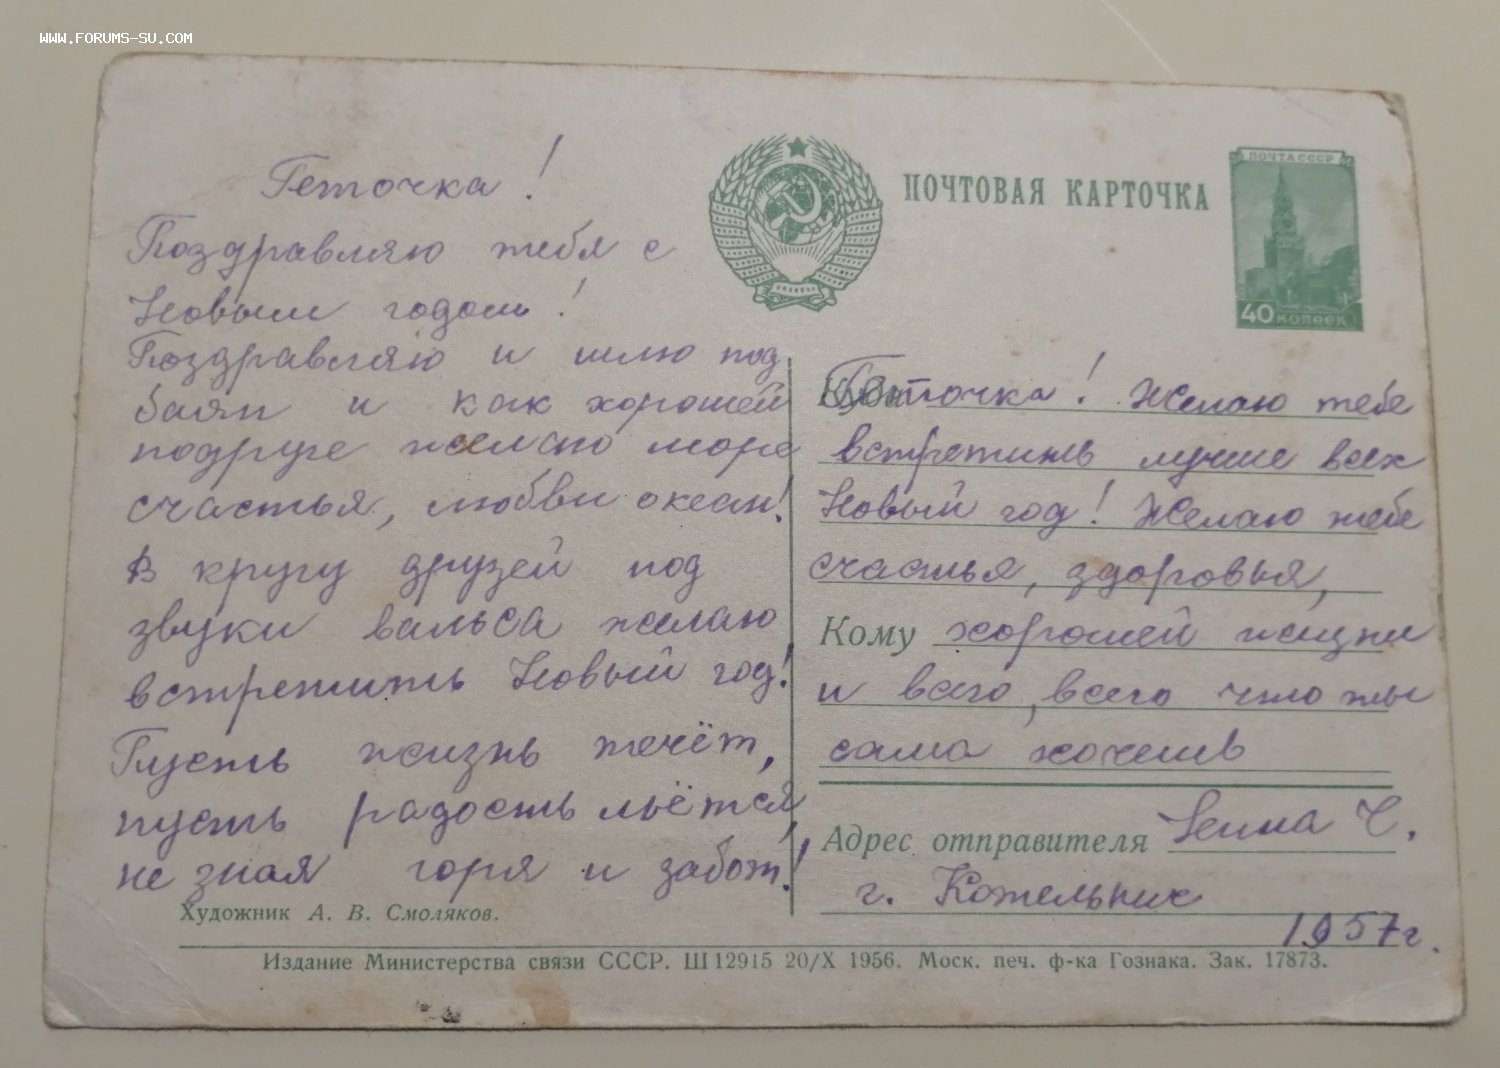 WWW.FORUMS-SU.COM
Геточка!
Поздравляю тебя с
Новым годом!
Поздравляю и шлю под
баян и как хорошей
подруге желаю море
счастья, любви океан!
В кругу друзей под
звуки вальса желаю
встретить Новый год!
Пусть жизнь течёт,
пусть радость льётся,
не зная горя и забот!
Художник А. В. Смоляков.
ПОЧТОВАЯ КАРТОЧКА
ПОЧТА СССР
40 КОПЕЕК
Куда Геточка! Желаю тебе
встретить лучше всех
Новый год! Желаю тебе
счастья, здоровья,
Кому хорошей жизни
и всего, всего что ты
сама хочешь
Адрес отправителя Ч.
г. Котельнич
1957г.
Издание Министерства связи СССР. Ш 12915 20/X 1956. Моск. печ. ф-ка Гознака. Зак. 17873.